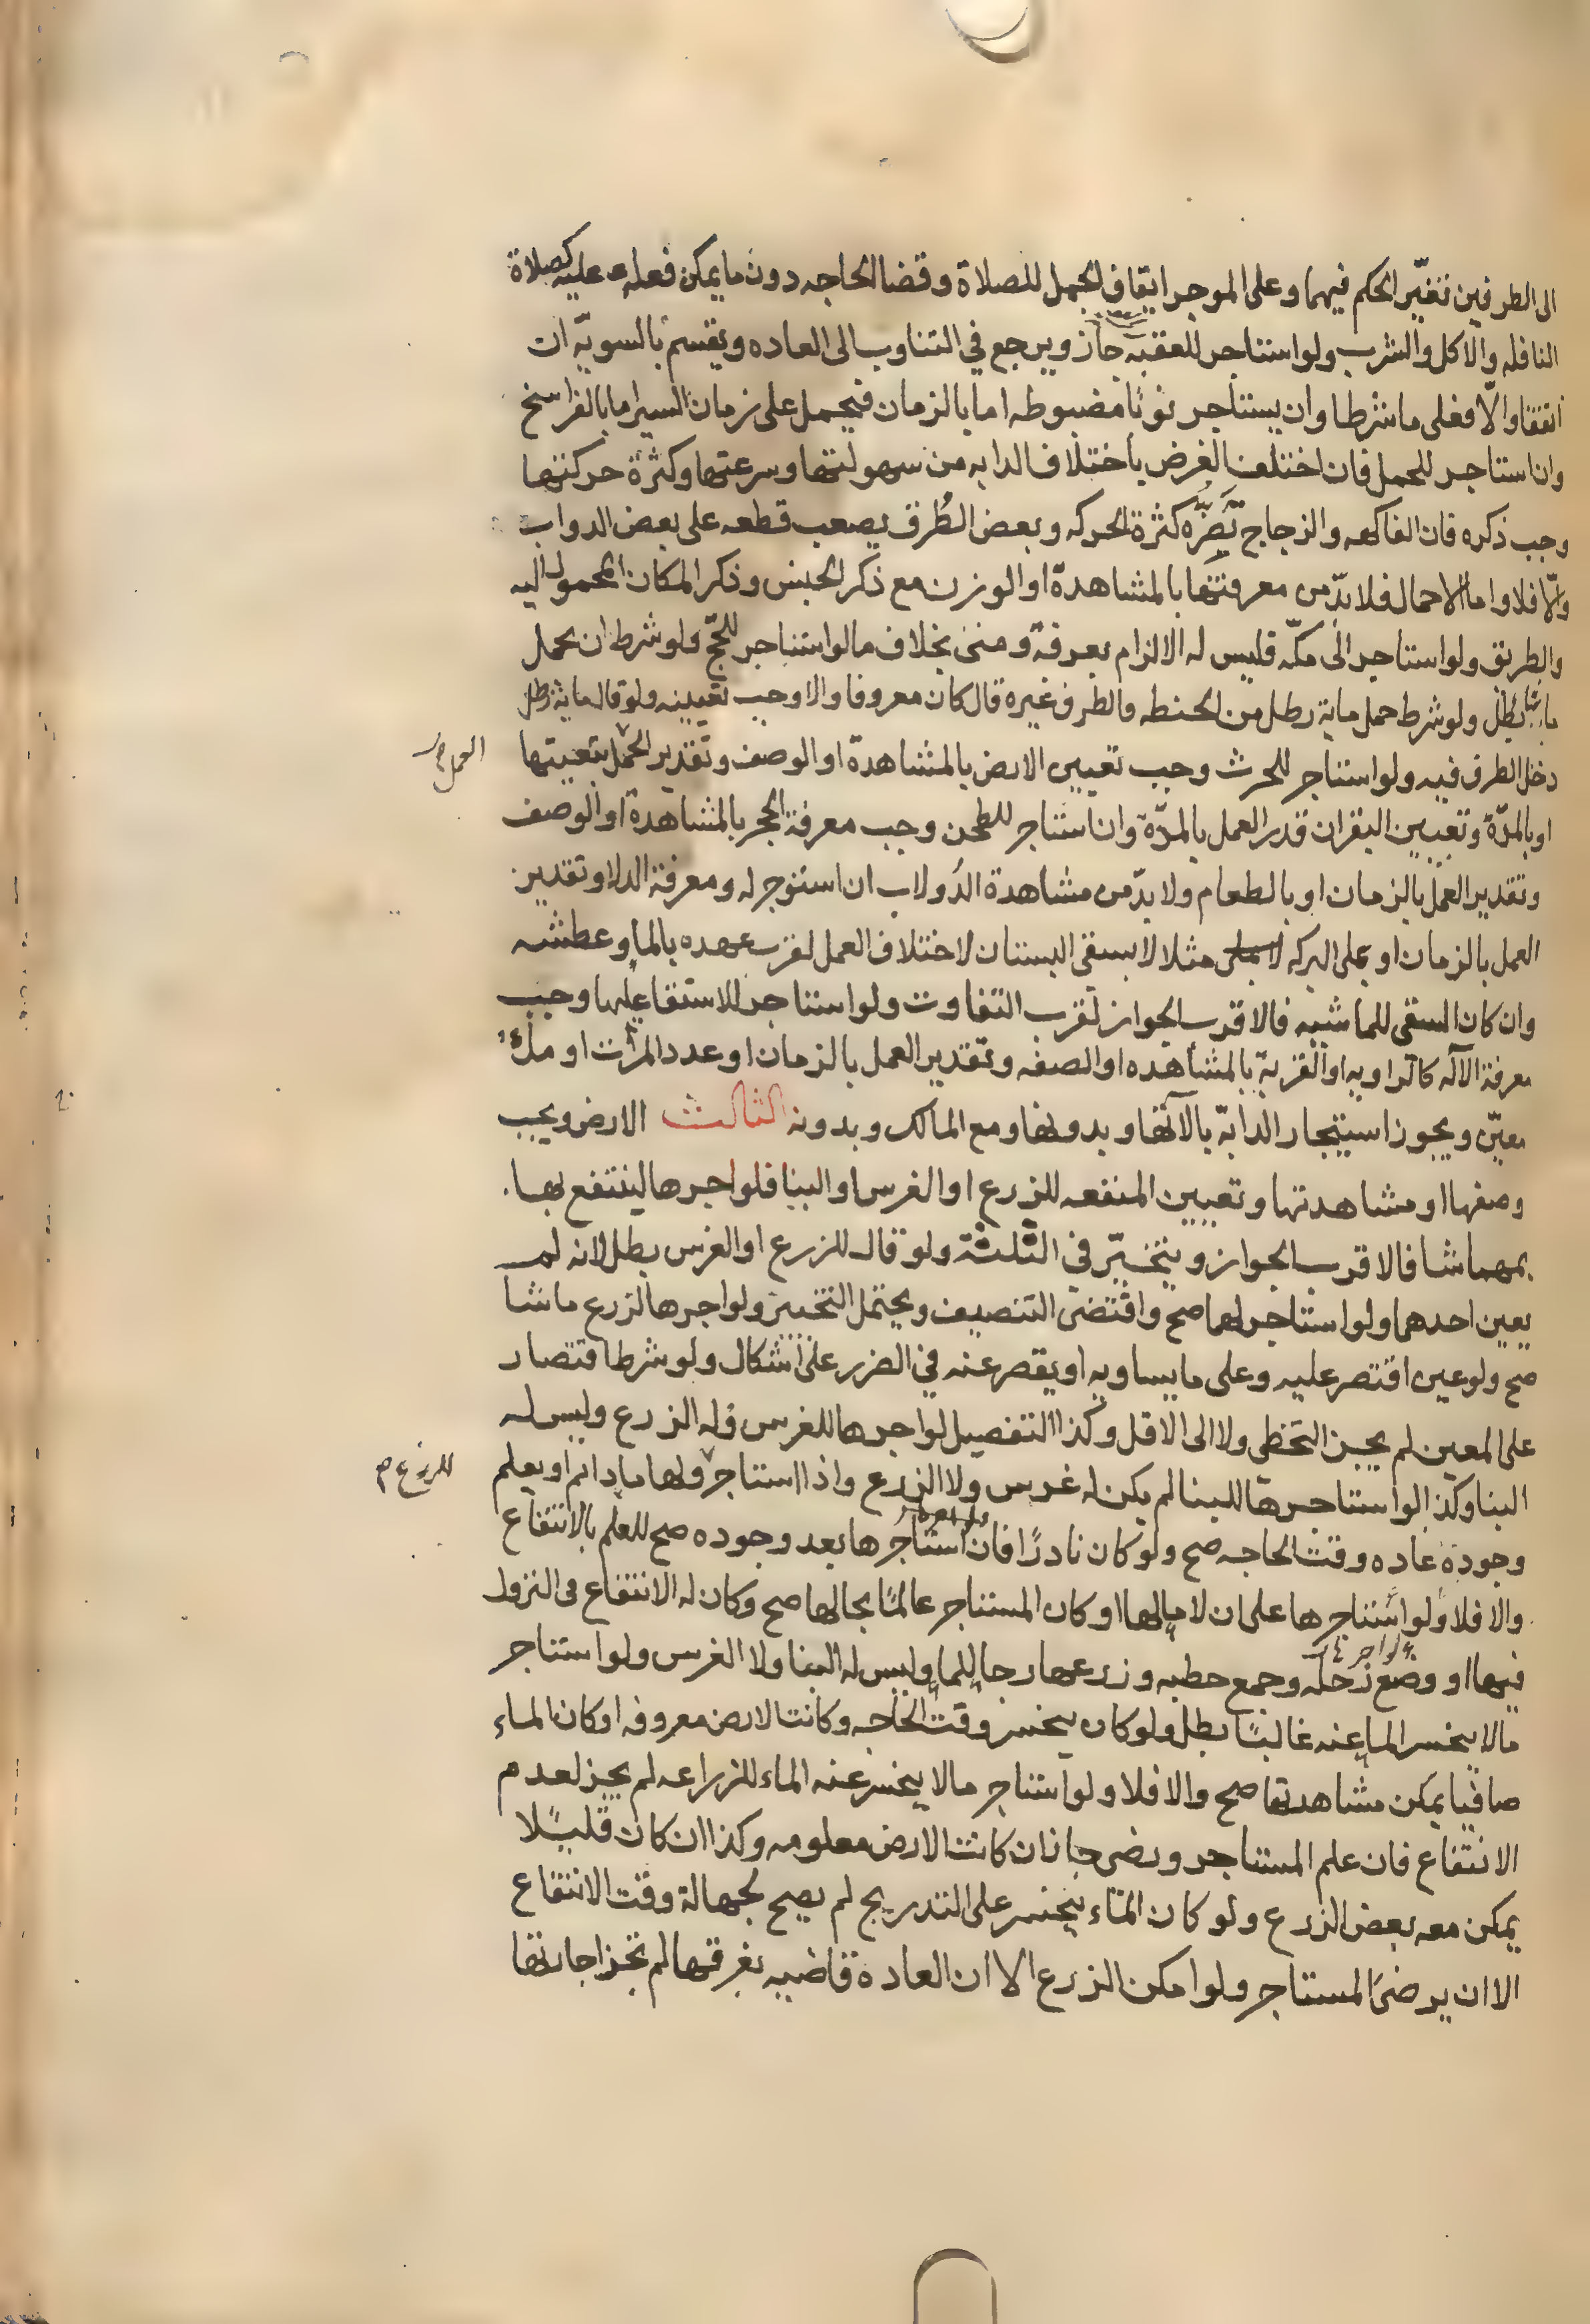 الى الطرفين تغيّر الحكم فيهما وعلى الموجر ايقاف الجمل للصلاة وقضا الحاجه دون ما يمكن فعله عليه كصلاة
النافله والاكل والشرب ولو استاجر للعقبه جاز ويرجع في التناوب الى العاده ويقسم بالسويّه ان
اتفقا والّا فعلى ما شرطا وان يستاجر نوبًا مضبوطه اما بالزمان فيحمل على زمان السير اما بالفراسخ
وان استاجر للحمل فان اختلف الغرض باختلاف الدابه من سهولتها وسرعتها وكثرة حركتها
وجب ذكره فان الفاكهه والزجاج تضرّه كثرة الحركه وبعض الطُرق يصعب قطعه على بعض الدواب
والّا فلا واما الاحمال فلا بدّ من معرفتها بالمشاهدة او الوزن مع ذكر الجنس وذكر المكان المحمول اليه
والطريق ولو استاجر الى مكّه فليس له الالزام بعرفة ومنى بخلاف ما لو استاجر للحّج ولو شرط ان يحمل
ما شا بطل ولو شرط حمل ماية رطل من الحنطه والظرف غيره قال كان معروفا والا وجب تعيينه ولو قال ماية رطل
دخل الظرف فيه ولو استاجر للحرث وجب تعيين الارض بالمشاهدة او الوصف وتقدير الحمل بتعيينها
العمل
او بالمدّة وتعيين البقر ان قدر العمل بالمدّة وان استاجر للطحن وجب معرفة الحجر بالمشاهدة او الوصف
وتقدير العمل بالزمان او بالطعام ولا بدّ من مشاهدة الدُولاب ان استوجر له ومعرفة الدلا وتقدير
العمل بالزمان او بملى البركه مثلا لا بسقى البستان لاختلاف العمل لقرب عهده بالما وعطشه
وان كان السقى للماشيه فالاقرب الجواز لقرب التفاوت ولو استاجر للاستقا عليها وجب
معرفة الآله كالراويه او القربة بالمشاهده او الصفه وتقدير العمل بالزمان او عدد المرّات او ملء
معيّن ويجوز استيجار الدابّه بالآتها وبدونها ومع المالك وبدونه الثالث الارض ويجب
وصفها او مشاهدتها وتعيين المنفعه للزرع او الغرس او البنا فلو اجرها لينتفع بها
بمهما شا فالاقرب الجواز ويتخيّر في الثلثة ولو قال للزرع او الغرس بطل لانه لم
يعين احدهما ولو استاجر لهما صح واقتضى التنصيف ويحتمل التخيير ولو اجرها لزرع ما شا
صح ولو عين اقتصر عليه وعلى ما يساويه او يقصر عنه في الضرر على اشكال ولو شرط اقتصار
على المعين لم يجز التخطى ولا الى الاقل وكذا التفصيل لو اجرها للغرس فله الزرع وليس له
البنا وكذا لو استاجرها للبنا لم يكن له غرس ولا الزرع واذا استاجر ولها ما دائم او يعلم
للزرع صح
وجوده عاده وقت الحاجه صح ولو كان نادرًا فان استاجرها بعد وجوده صح للعلم بالانتفاع
والا فلا ولو استاجرها على ان لا ما لها او كان المستاجر عالمًا بحالها صح وكان له الانتفاع فى النزول
فيها او وضع رحله وجمع حطبه وزرعها رجا للما وليس له البنا ولا الغرس ولو استاجر
ما لا ينحسر الما عنه غالبًا بطل ولو كان ينحسر وقت الحاجه وكانت الارض معروفه او كان الماء
صافيا يمكن مشاهدتها صح والا فلا ولو استاجر ما لا ينحسر عنه الماء للزراعه لم يجز لعدم
الانتفاع فان علم المستاجر ورضى جاز ان كانت الارض معلومه وكذا ان كان قليلًا
يمكن معه بعض الزرع ولو كان الماء ينحسر على التدريج لم يصح لجهالة وقت الانتفاع
الا ان يرضى المستاجر ولو امكن الزرع الا ان العادة قاضيه بغرقها لم تجز اجارتها